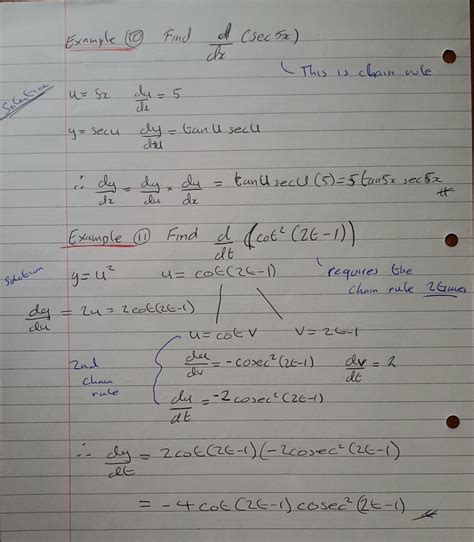 Example 10 Find d/dx (sec5x)
This is chain rule
Solution
u = 5x du/dx = 5
y = secu dy/du = tanu secu
∴ dy/dx = dy/du × du/dx = tanu secu (5) = 5tan5x sec5x #
Example 11 Find d/dt (cot²(2t-1))
requires the
chain rule 2times
Solution
y = u² u = cot(2t-1)
dy/du = 2u = 2cot(2t-1)
u = cot v v = 2t-1
2nd
chain
rule
du/dv = -cosec²(2t-1) dv/dt = 2
du/dt = -2cosec²(2t-1)
∴ dy/dt = 2cot(2t-1)(-2cosec²(2t-1)
= -4cot(2t-1)cosec²(2t-1) #